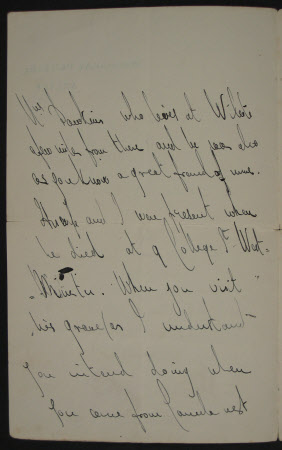 Mrs Dawkins who lives at Wilton
few miles from there and he was also
as you know a great friend of mine.
and I were present when
he died at 9 College St West-
-minster. When you visit
his grave (as I understand
you intend doing when
you come from next